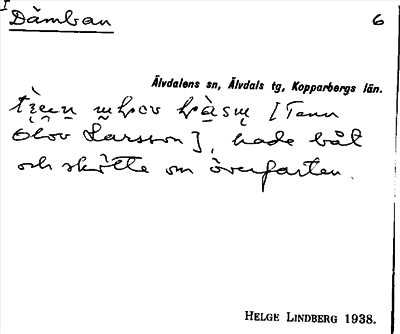 Dämban 6
Älvdalens sn, Älvdals tg, Kopparbergs län.
[Tenn
Olov Larsson], hade båt
och skötte om överfarten.
HELGE LINDBERG 1938.